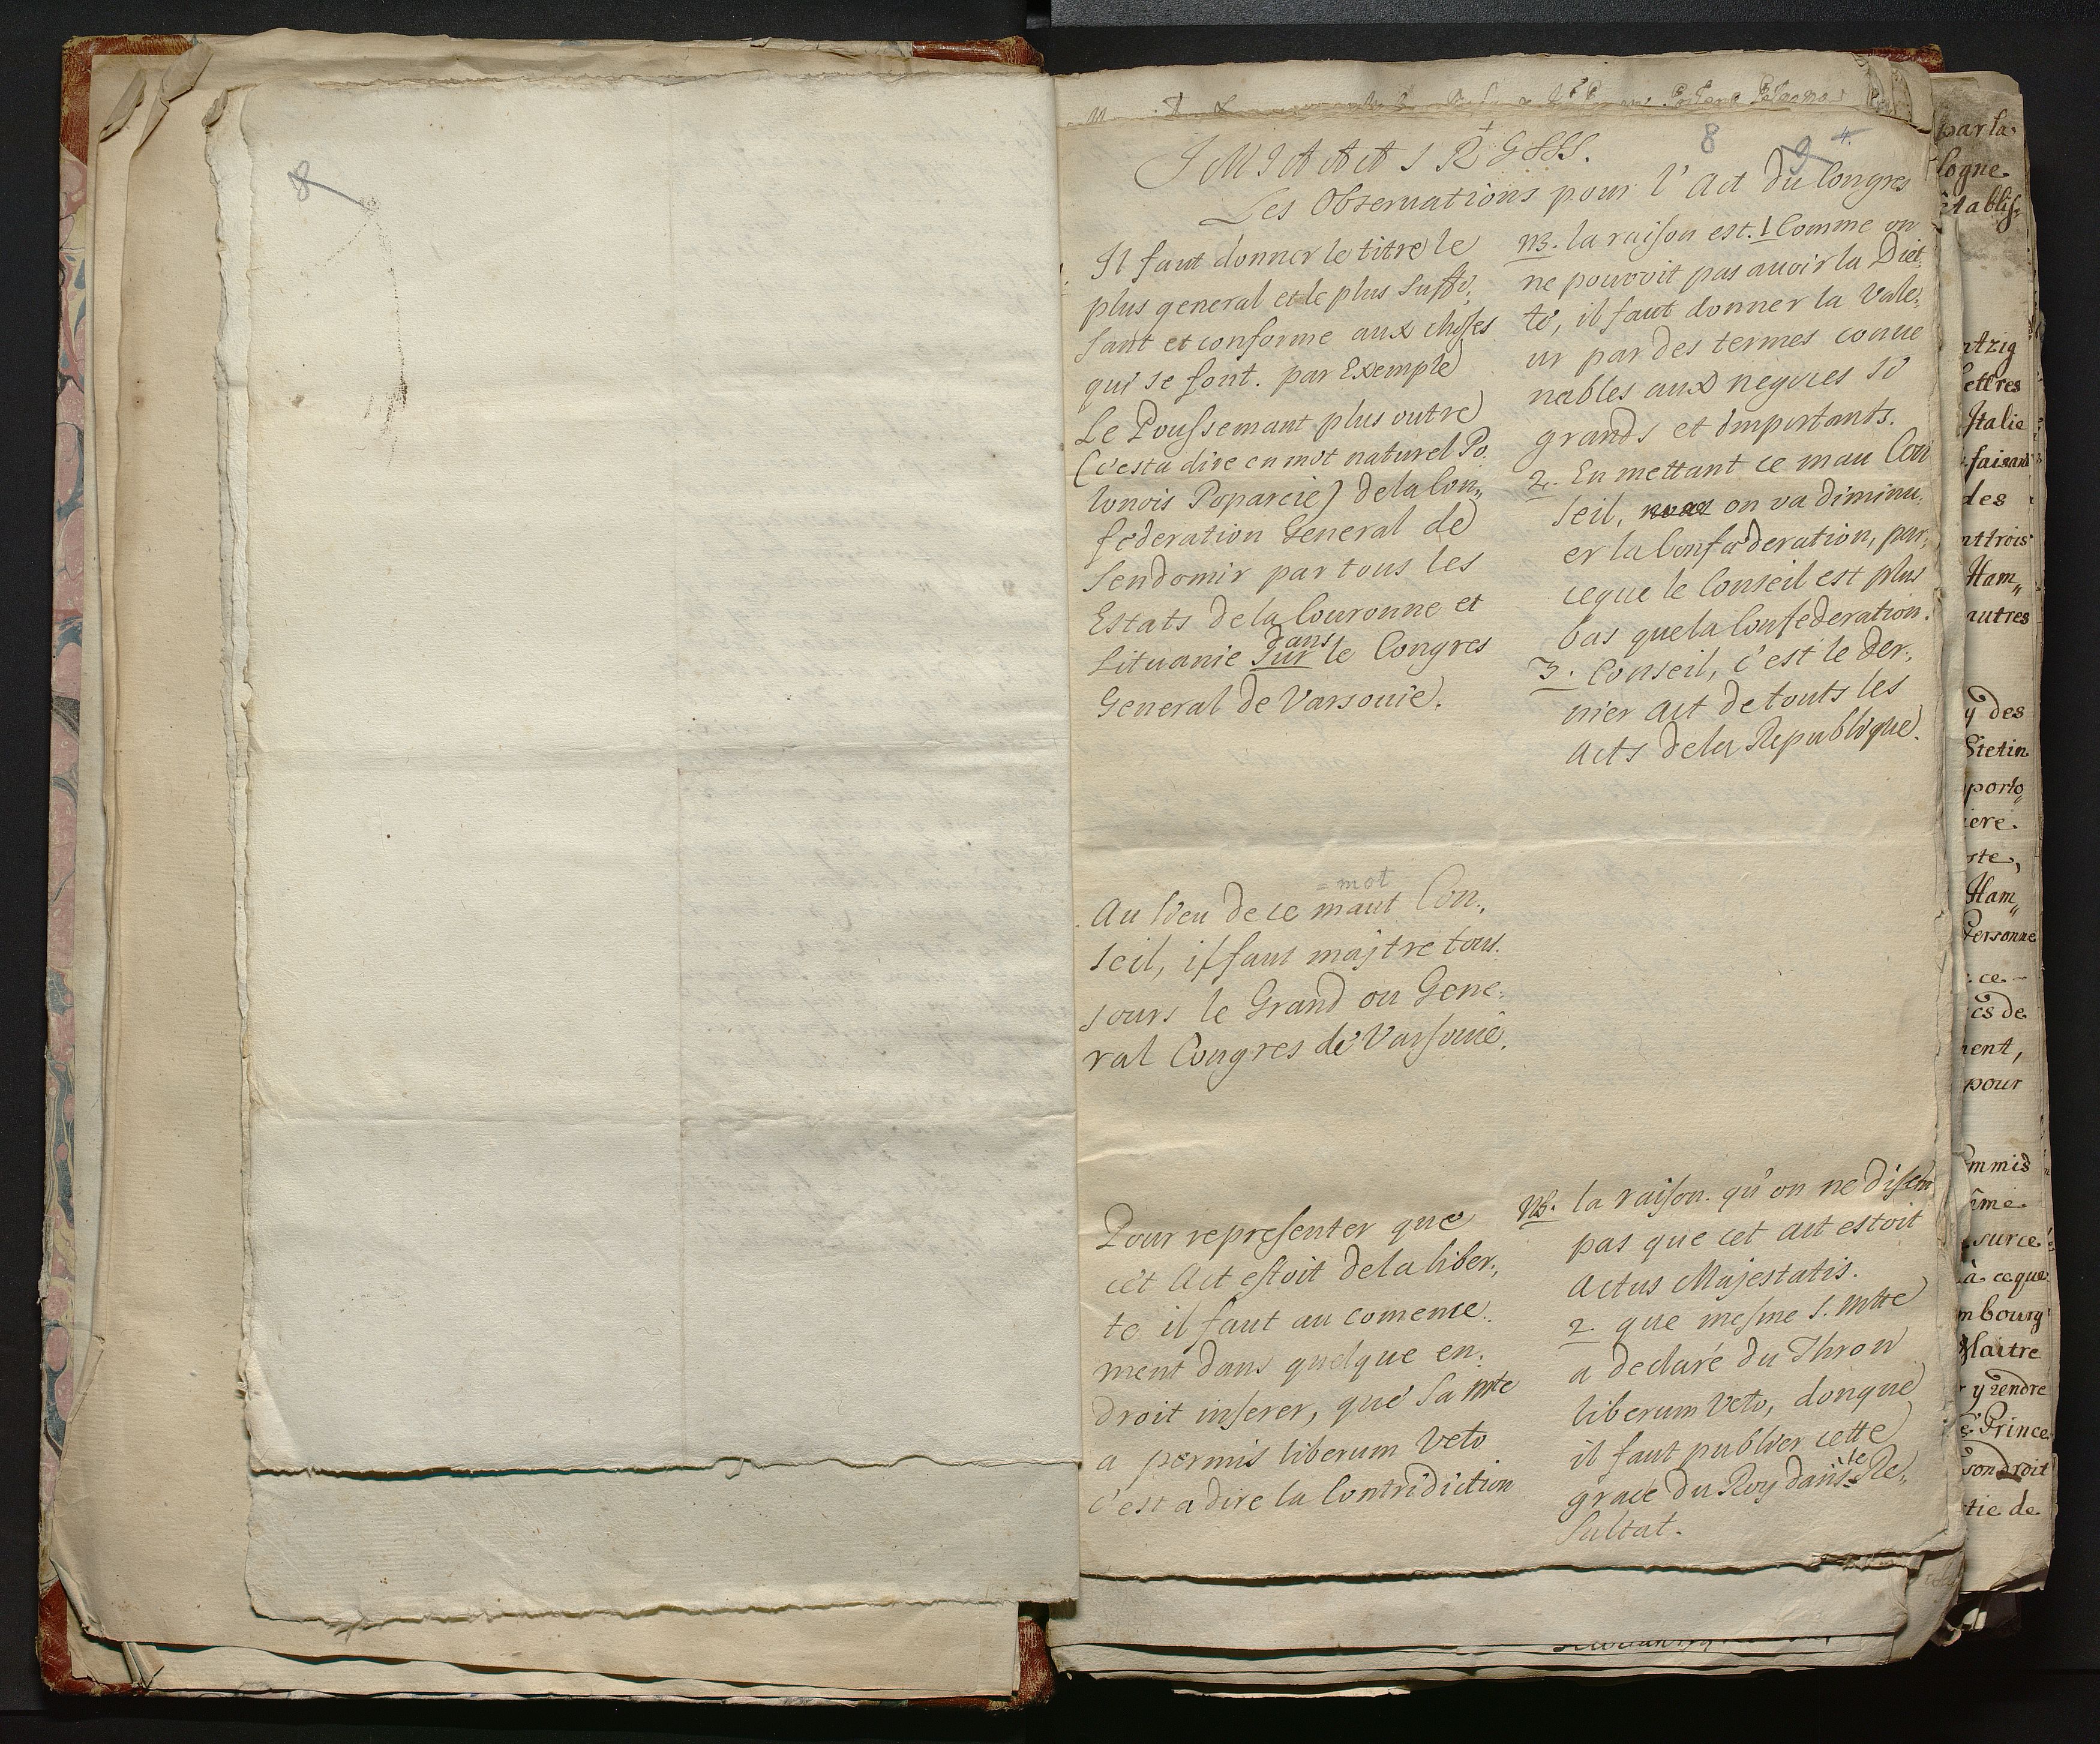 8
8 9 4.
J M J A A A S R G S S S.
Les Obseruations pour l'Act du Congres
Il faut donner le titre le
plus general et le plus suffi„
sant et conforme aux choses
qui se font. par Exemple
Le Poussemant plus outre
(c'est a dire en mot naturel Po„
lonois Poparcie) de la Con„
federation General de
Sendomir par tous les
Estats de la Couronne et
dans
Lituanie sur le Congres
General de Varsouie.
NB. la raison est. 1 Comme on
ne pouvoit pas auoir la Diet„
te, il faut donner la Vale„
ur par des termes conue
nables aux negoces si
grands et importants.
2. En mettant ce mau Con
seil, on va diminu„
er la Confaderation, par„
ceque le Conseil est plus
bas que la Confederation.
3. Conseil, c'est le der„
nier Act de touts les
Acts de la Republique.
= mot
Au lieu de ce maut Con„
seil, il faut majtre tous„
jours le Grand ou Gene„
ral Congres de Varsouie.
Pour representer que
cet Act estoit de la liber„
te il faut au comence„
ment dans quelque en„
droit inserer, que Sa Mte
a permis liberum Veto
c'est a dire la Contridiction
NB. la raison. qu'on ne disent
pas que cet Act estoit
Actus Majestatis.
2. que mesme S. Mtte
a declaré du Thron
liberum Veto, donque
il faut publier cette
le
grace du Roy dans Re„
sultat.
par la
logne
etablis„
ntzig
lettres
Italie
faisant
des
nttrois
Ham„
autres
y des
Stetin
porto„
iere.
ste,
Ham„
Personne
ce
cs de
nent,
pour
mmis
ime
sur ce
à ceque
mbourg
Maitre
y rendre
Prince
son droit
tie de